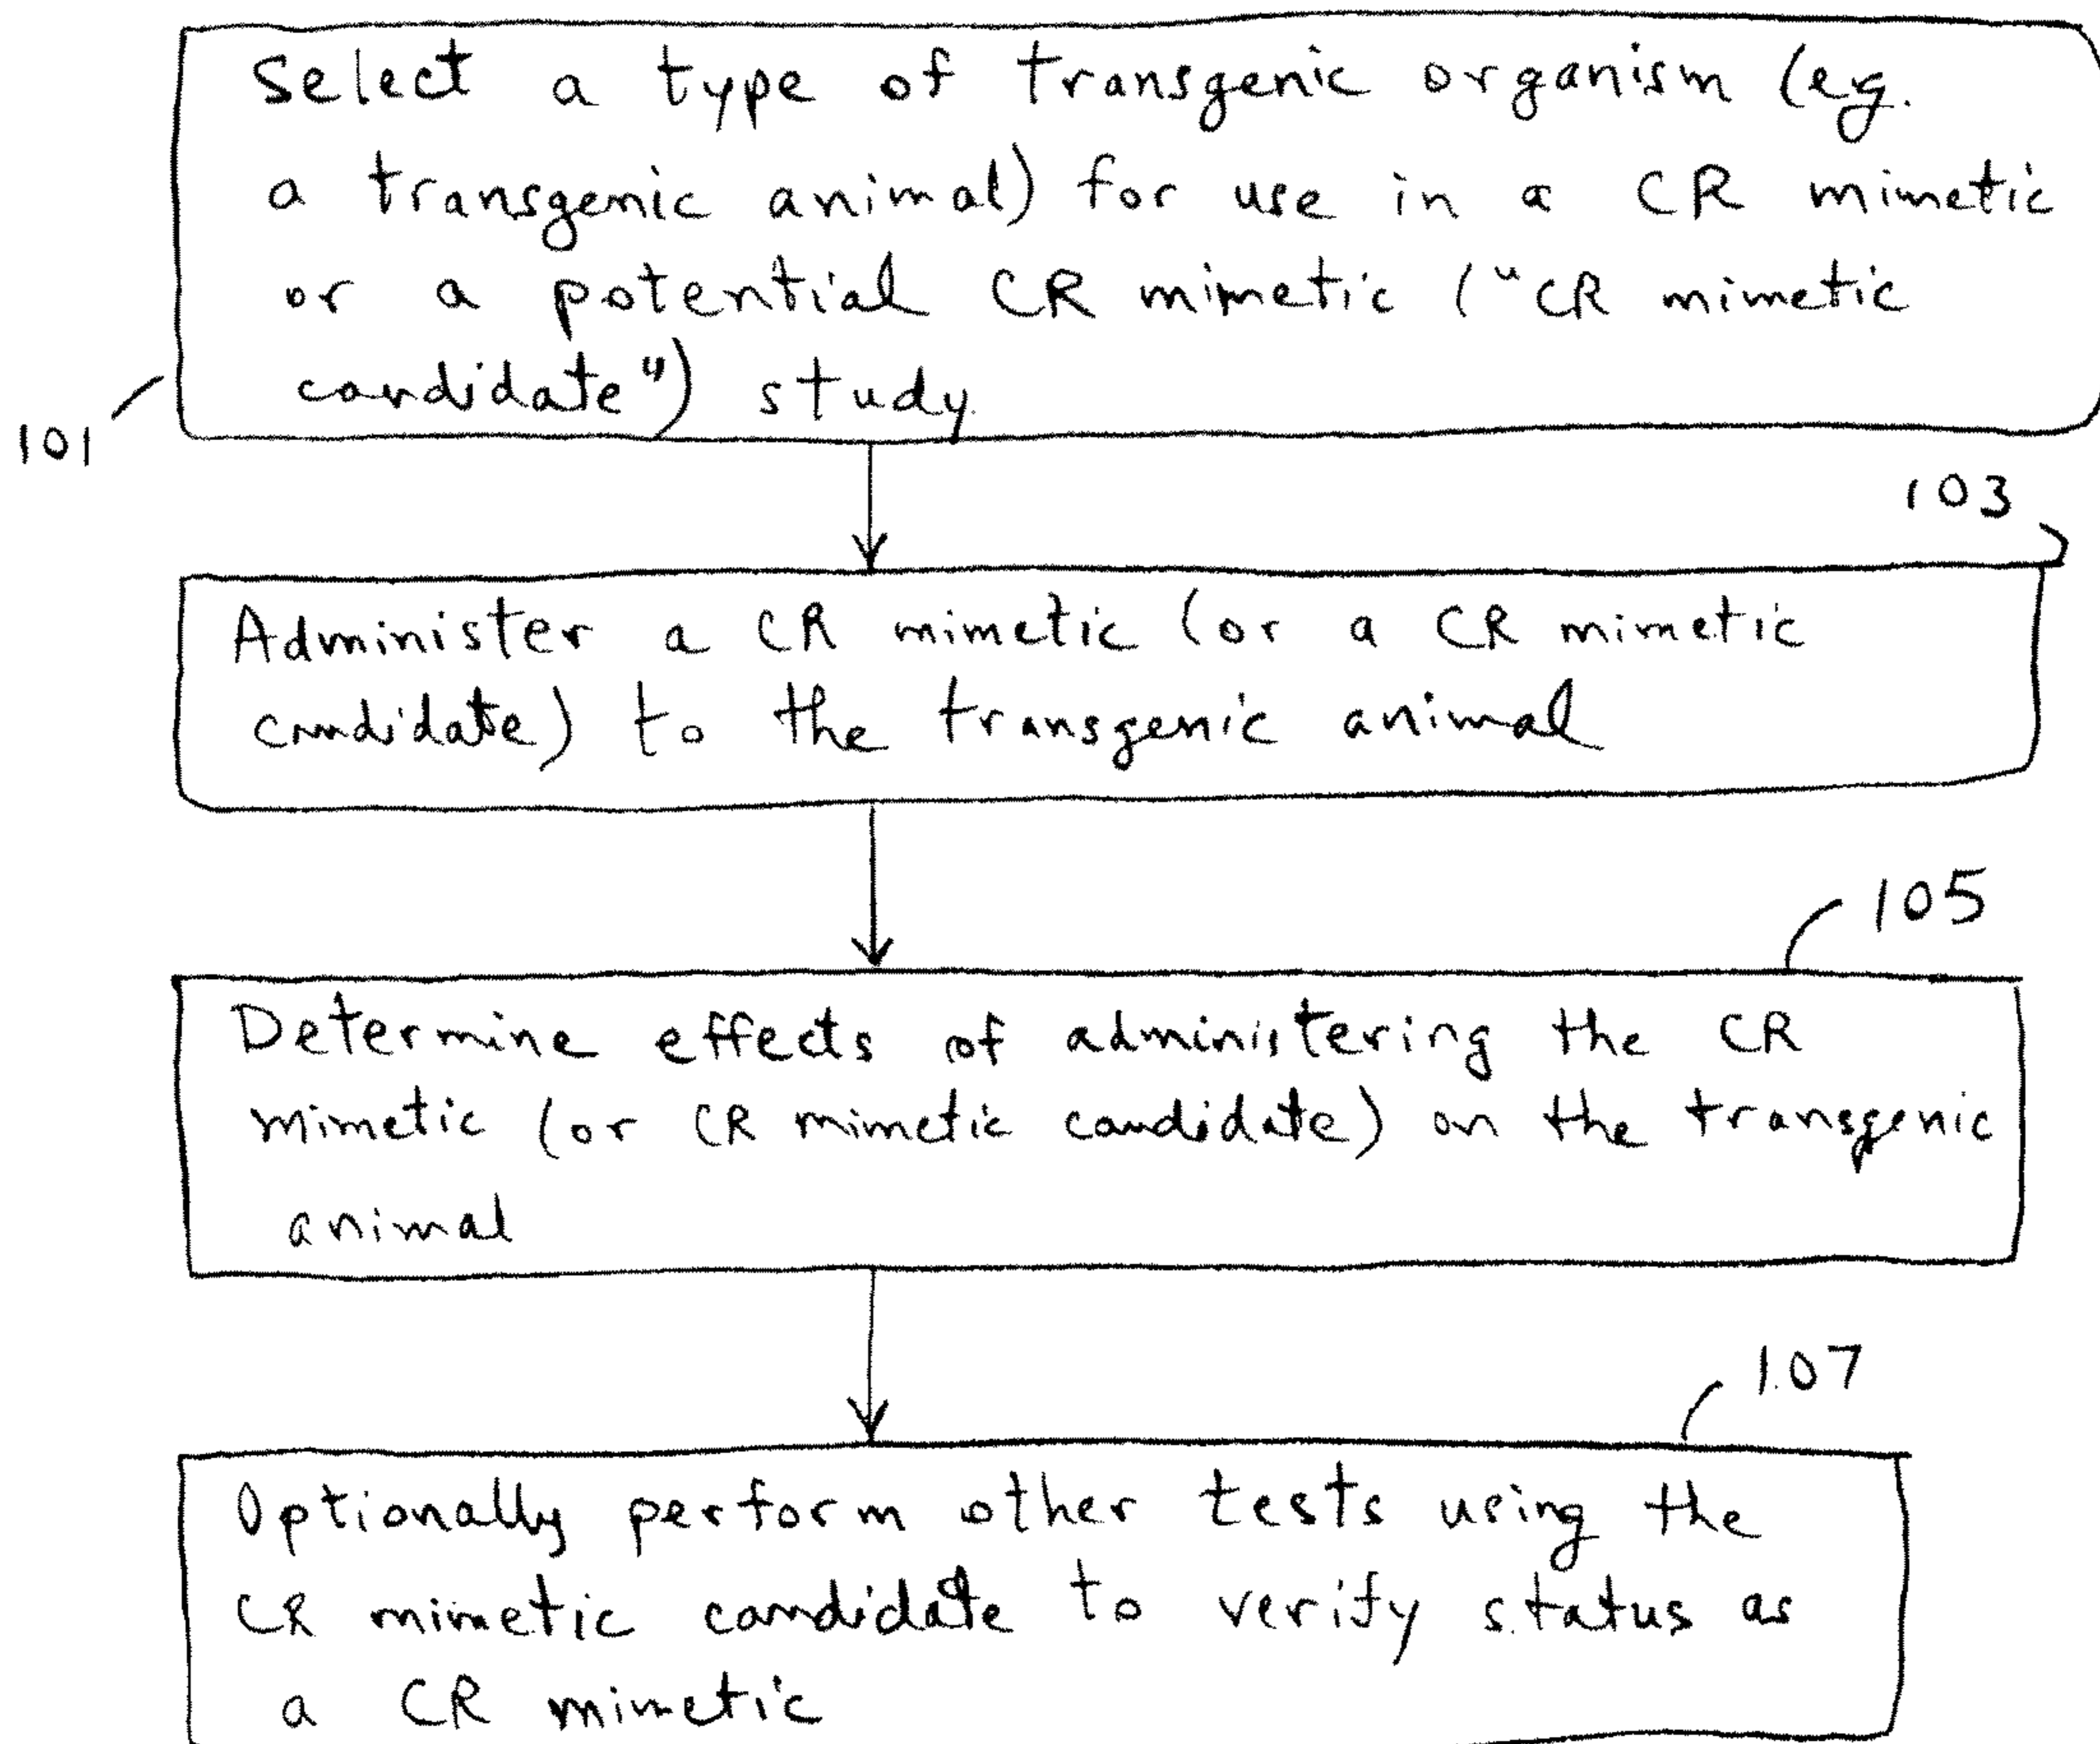 Select a type of transgenic organism (eg.
a transgenic animal) for use in a CR mimetic
or a potential CR mimetic ("CR mimetic
candidate") study.
101
103
Administer a CR mimetic (or a CR mimetic
candidate) to the transgenic animal
105
Determine effects of administering the CR
mimetic (or CR mimetic candidate) on the transgenic
animal
107
Optionally perform other tests using the
CR mimetic candidate to verify status as
a CR mimetic